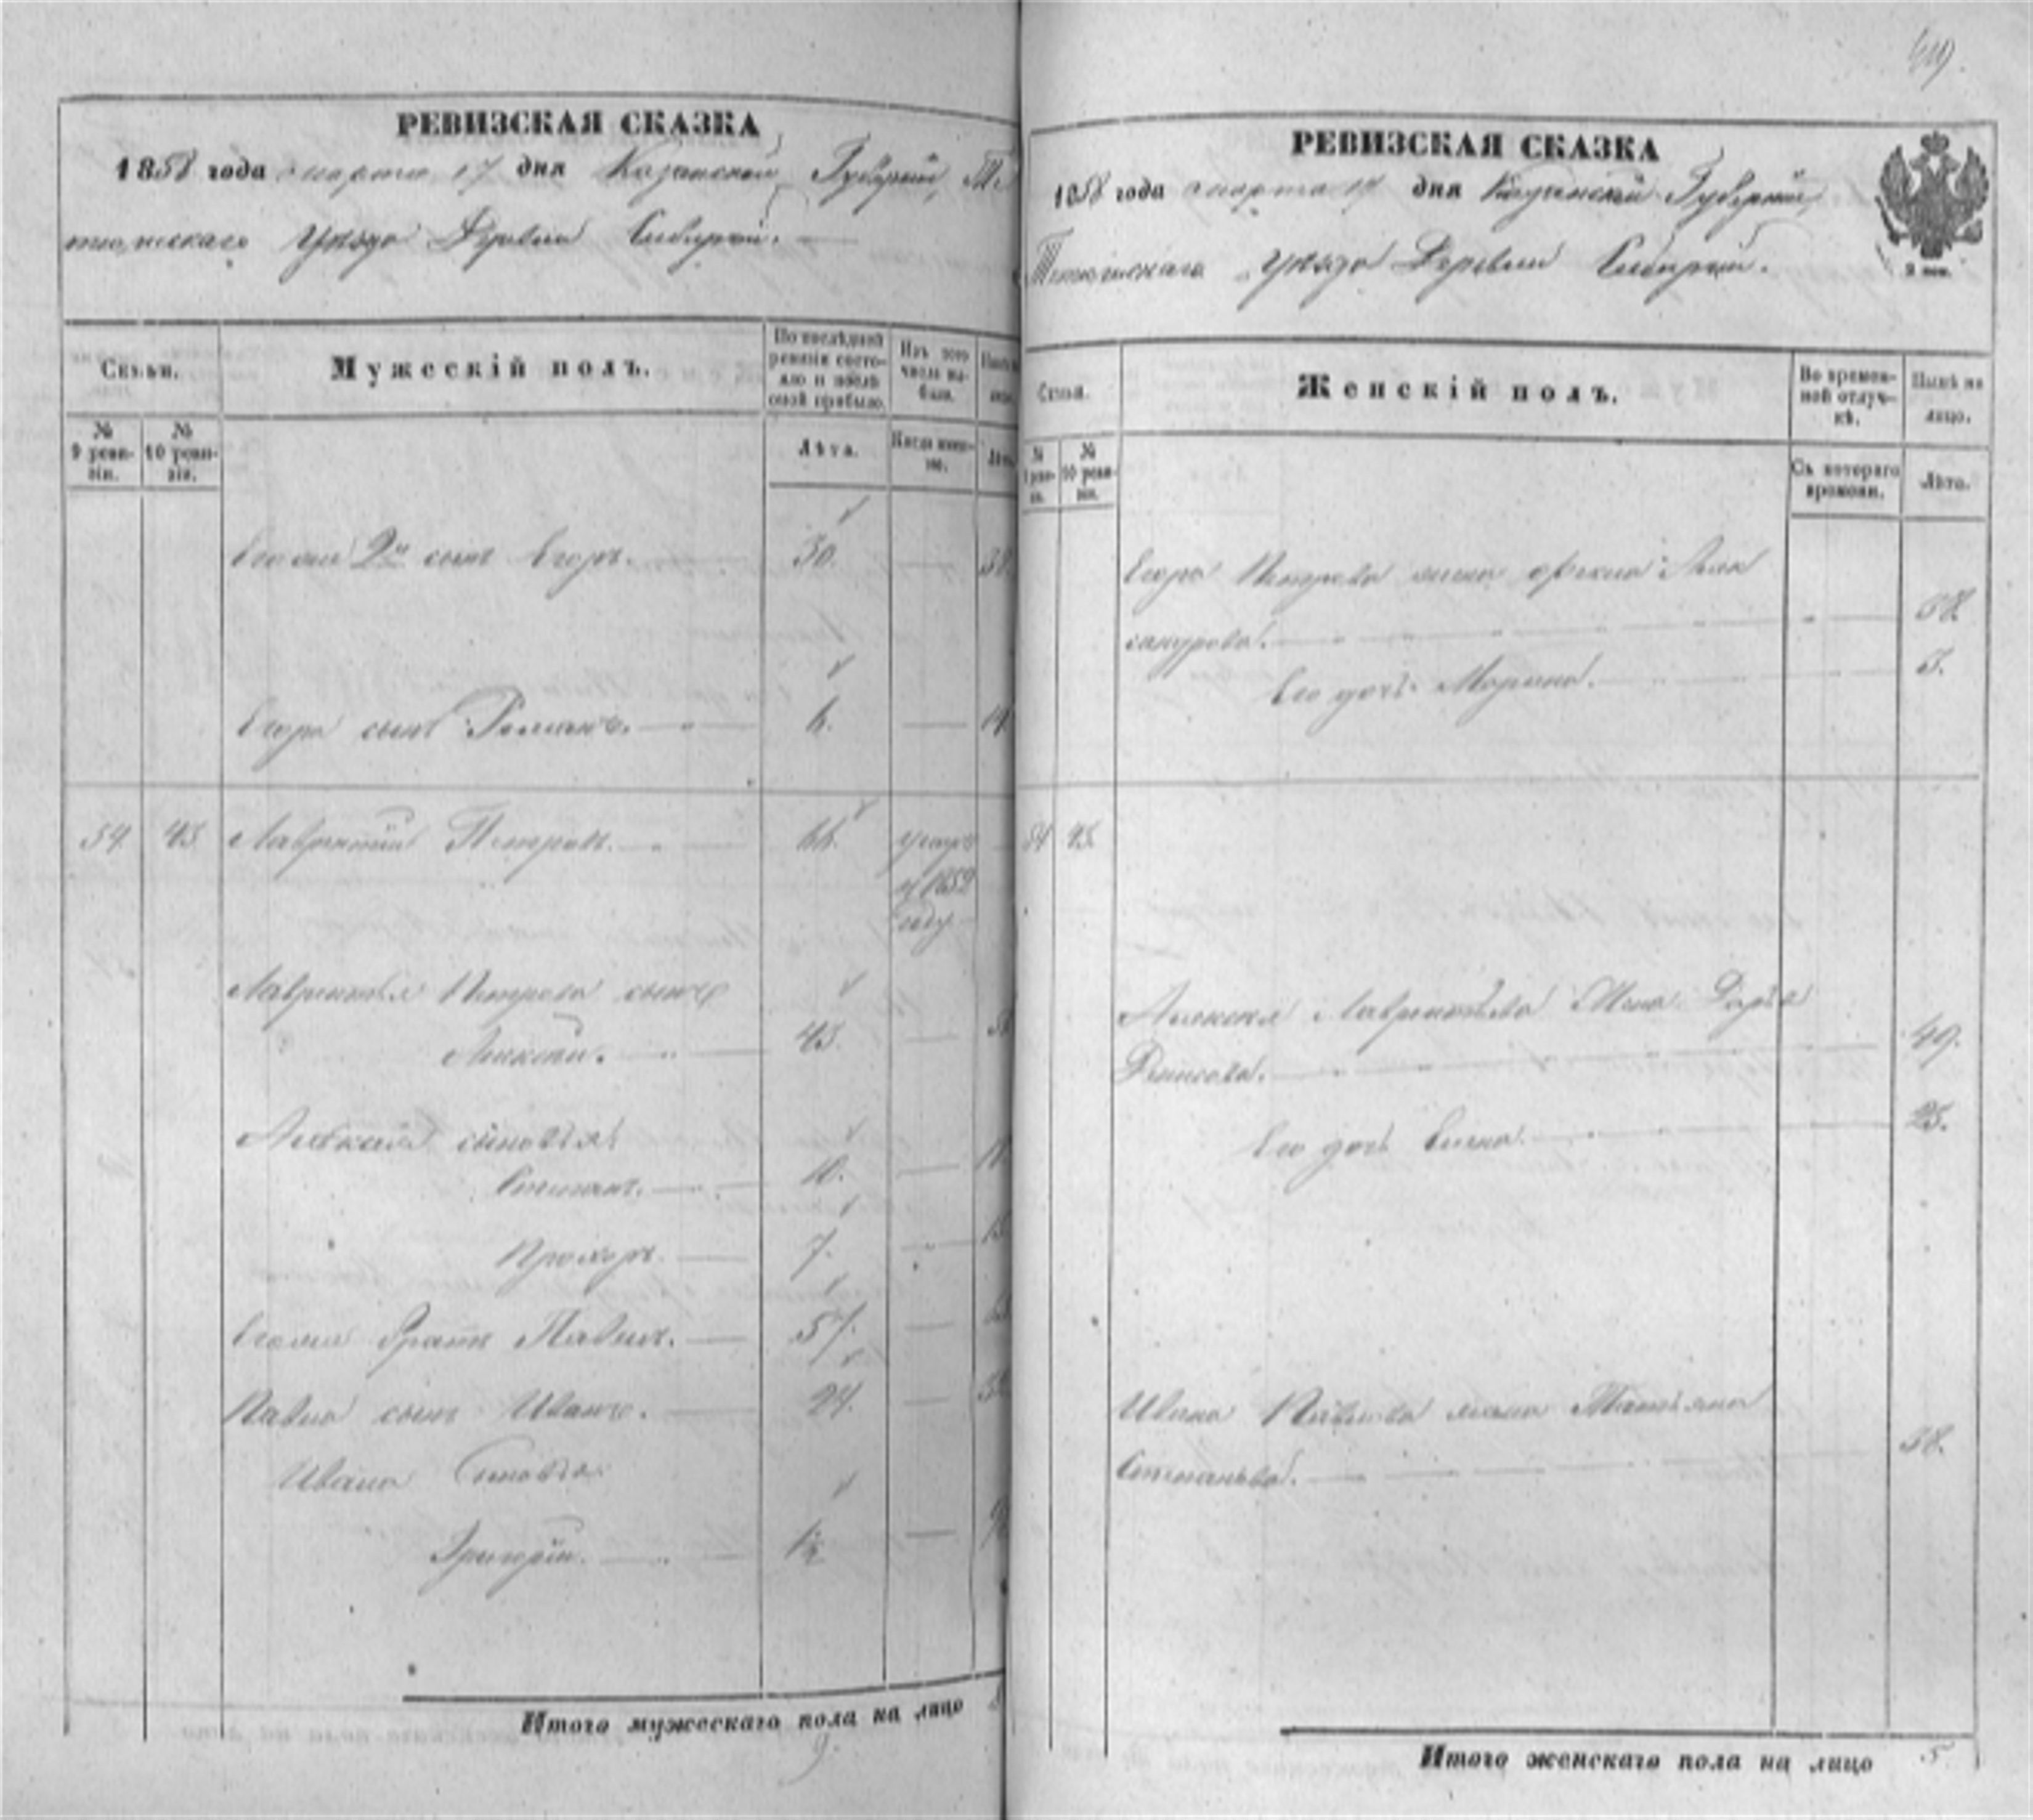 РЕВИЗСКАЯ СКАЗКА
1858 года марта 17 дня Казанской Губернии, Те
тюшскаго Уезда Деревни Сибирчи.
Семьи.
Мужескій полъ.
По послѣдней ревизіи состояло и послѣ оной прибыло.
Изъ того числа выбыло.
№ 9 ревизіи.
№ 10 ревизіи.
Лѣта.
Когда именно.
Его же 2й сынъ Егоръ. 30.
Егора сынъ Романъ. 6.
54. 45. Лаврентій Петровъ. 66. умеръ
в 1852
году
Лаврентья Петрова сынъ
Алексей. 45.
Алексея сыновья
Степанъ. 10.
Прохоръ. 7.
Его же братъ Павелъ. 57.
Павла сынъ Иванъ. 24.
Ивана Сыновья
Григорій. 1/2
Итого мужескаго пола на лицо
9.
РЕВИЗСКАЯ СКАЗКА
1858 года марта 17 дня Казанской Губернии,
Тетюшскаго уезда Деревни Сибирчи.
2 коп.
Семьи.
Женскій полъ.
Во временной отлучкѣ.
Нынѣ на лицо.
№ 9 ревизіи.
№ 10 ревизіи.
Съ котораго времени.
Лѣта.
Егора Петрова жена Алек
сандрова. 38.
Его дочь Марина. 5.
54 45.
Алексея Лаврентьева Жена Дарья
49.
Его дочь Елена. 25.
Ивана Павлова жена Татьяна
Степанова. 38.
Итого женскаго пола на лицо 5